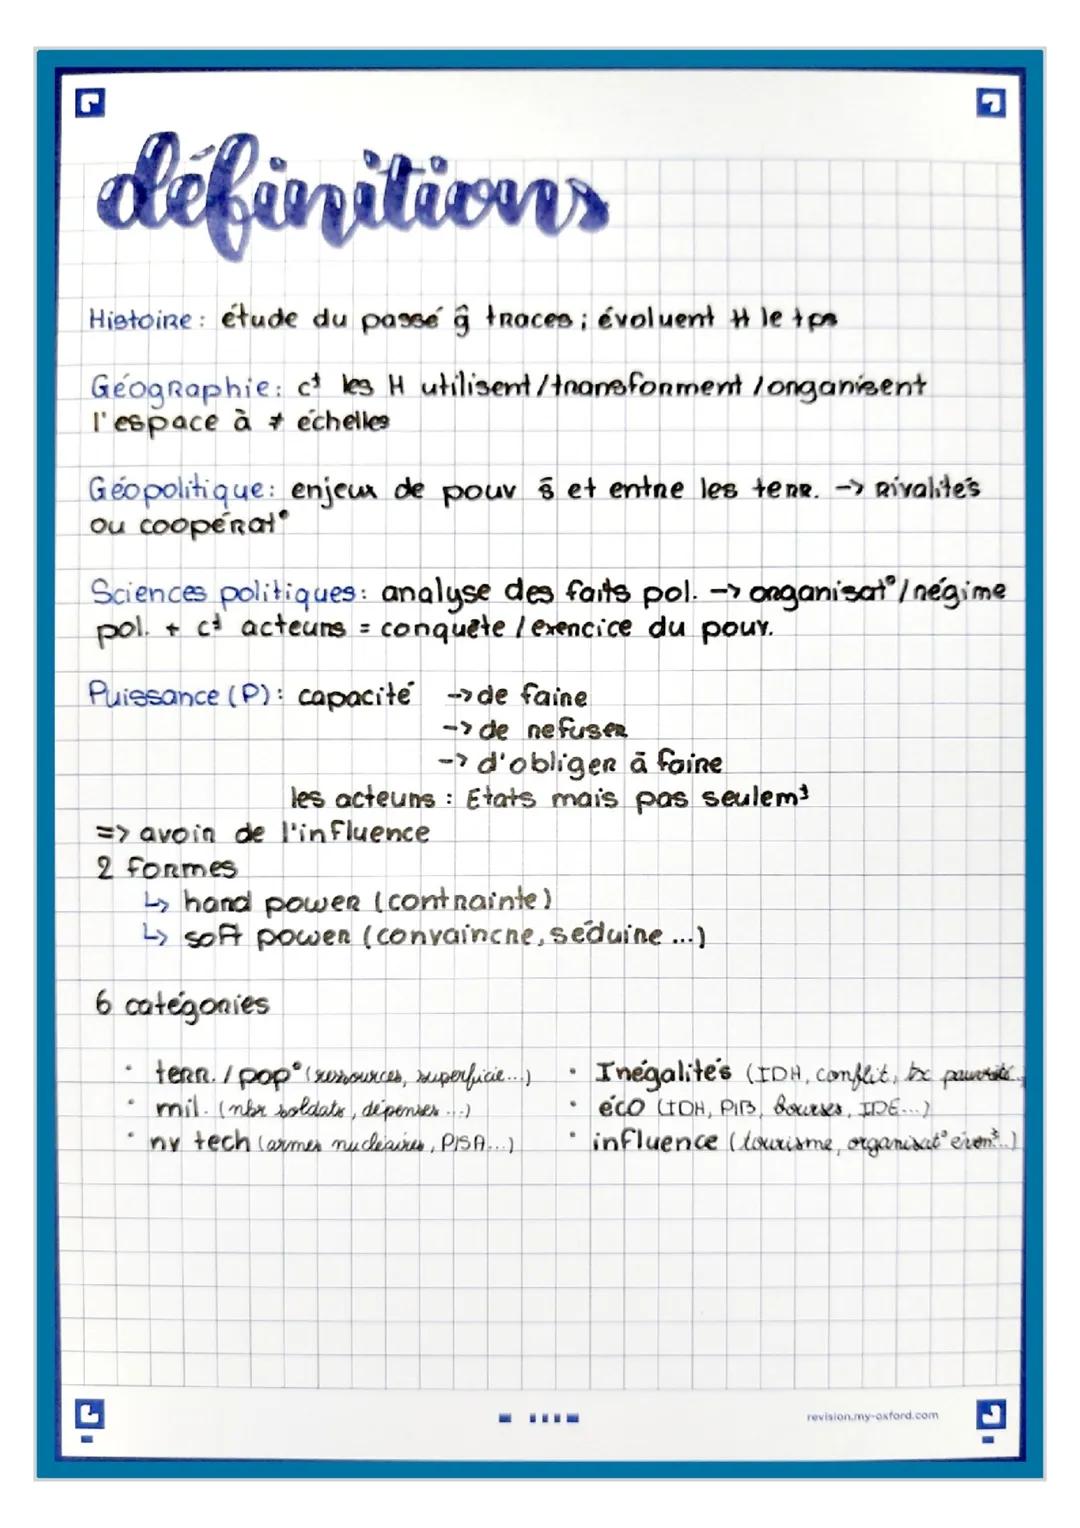 définitions
Histoire : étude du passé ĝ traces ; évoluent # le tps
Géographie : ct les H utilisent / transforment / organisent
l'espace à ≠ échelles
Géopolitique : enjeux de pouv s̄ et entre les terr. -> Rivalités
ou coopérat°
Sciences politiques : analyse des faits pol. -> organisat° / régime
pol. + ct acteurs = conquête / exercice du pouv.
Puissance (P) : capacité -> de faire
-> de refuser
-> d'obliger à faire
les acteurs : Etats mais pas seulemt
=> avoir de l'influence
2 formes
↳ hard power (contrainte)
↳ soft power (convaincre, séduire ...)
6 catégories
• terr. / pop° (ressources, superficie...) • Inégalités (IDH, conflit, tx pauvreté.
• mil. (nbr soldats, dépenses ...) • éco (IDH, PIB, Bourses, IDE...)
• nv tech (armes nucléaires, PISA...) • influence (tourisme, organisat° évent...)
revision.my-oxford.com